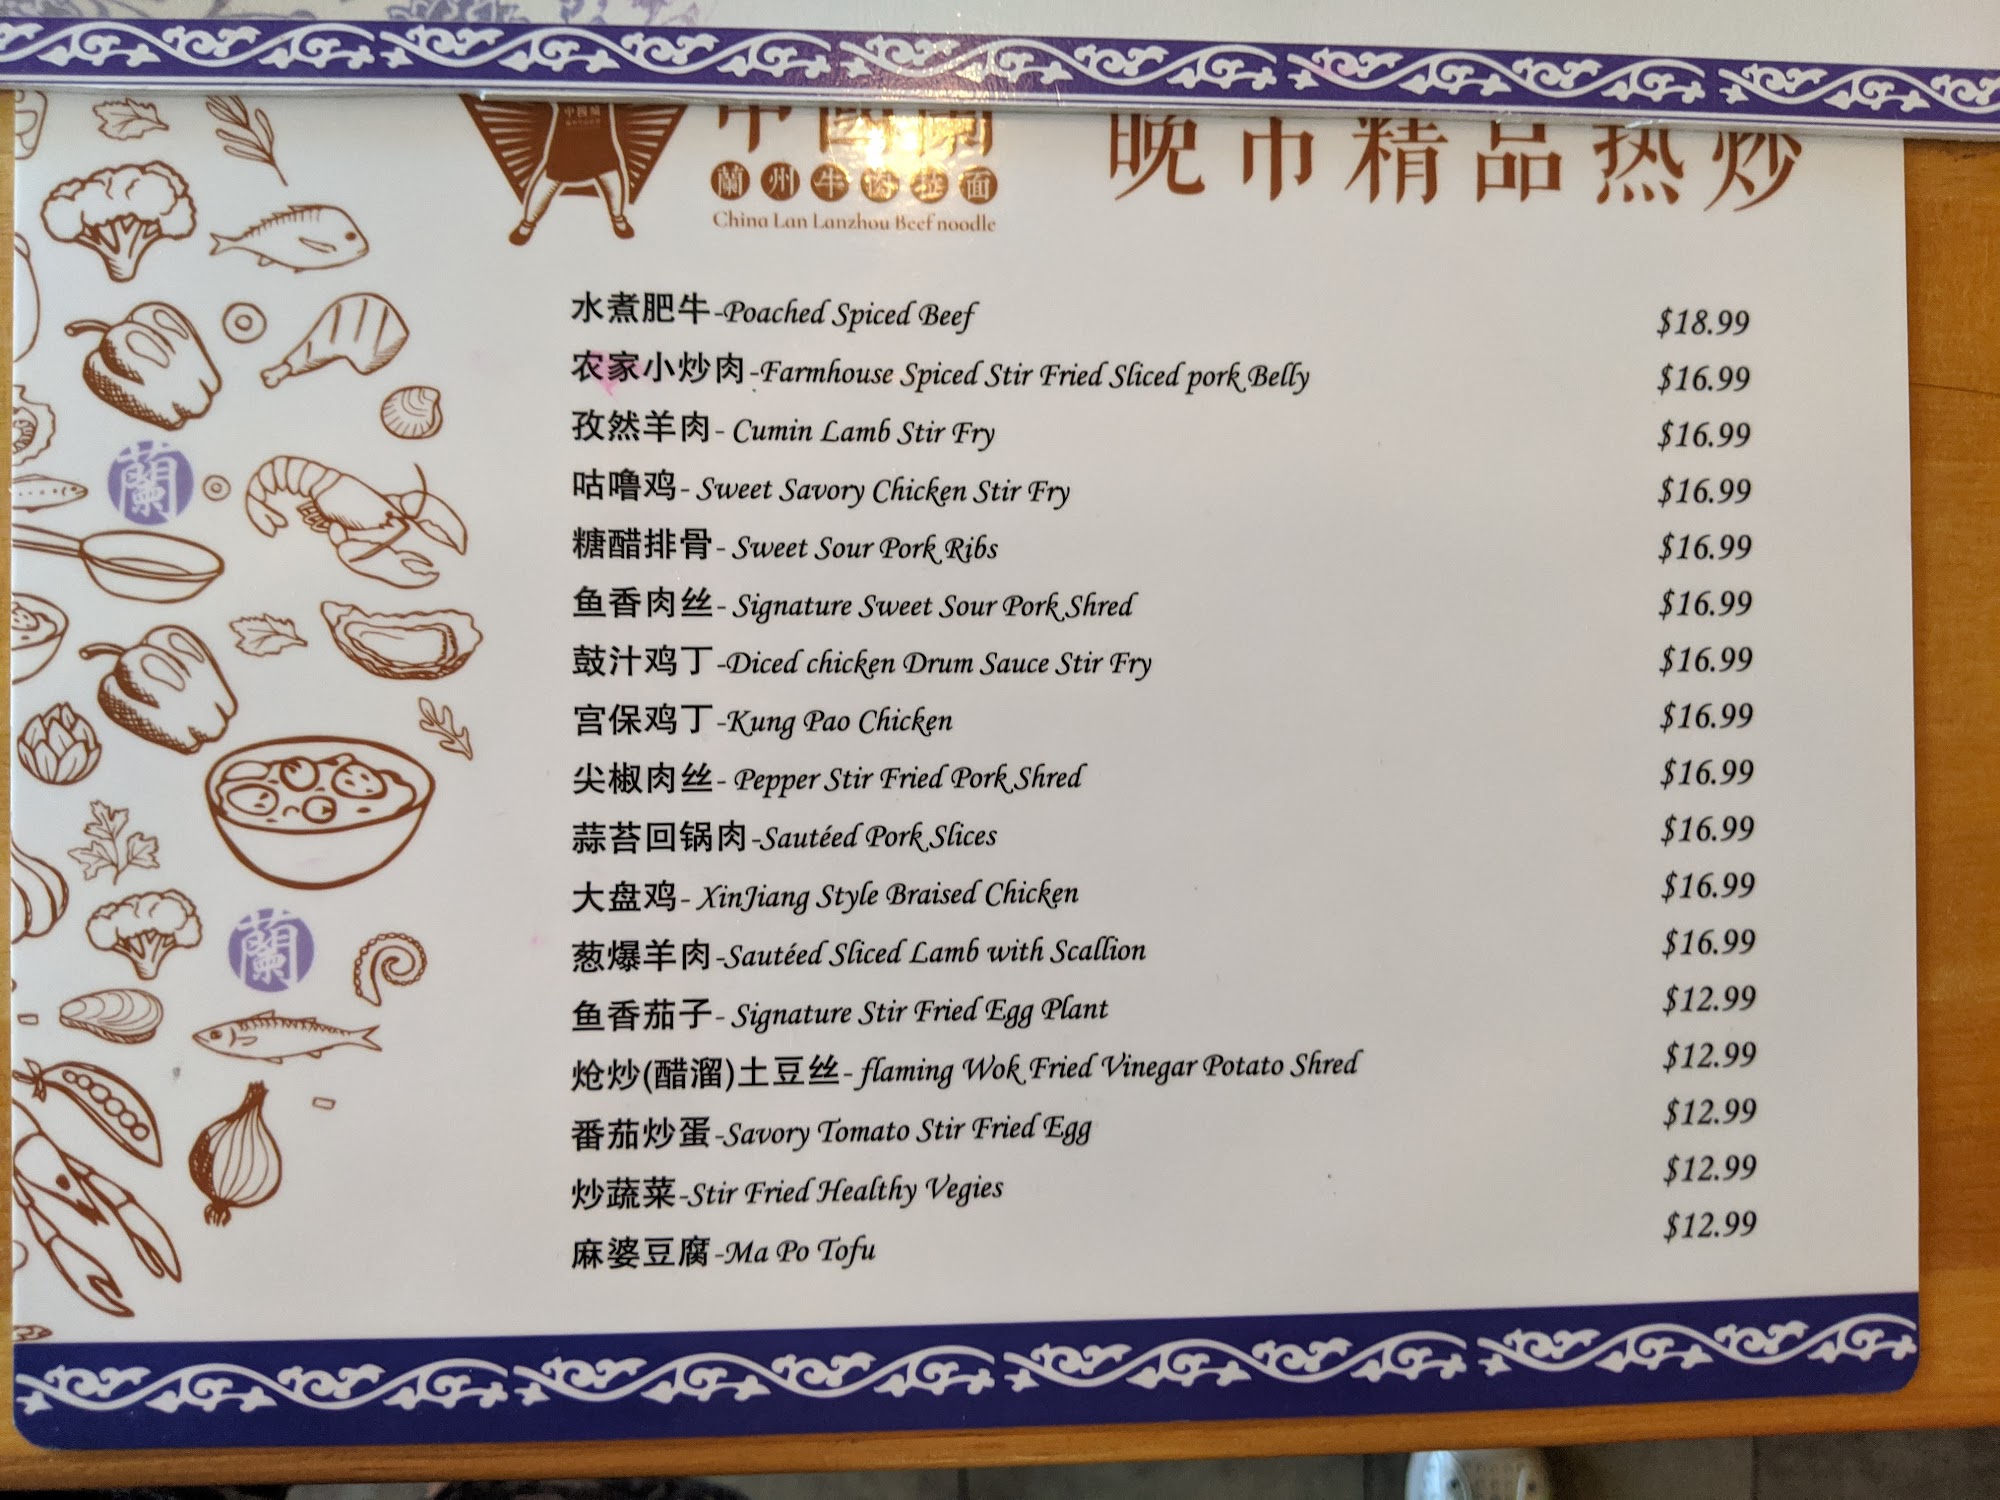 中國蘭
晚市精品热炒
蘭州牛肉拉面
China Lan Lanzhou Beef noodle
水煮肥牛-Poached Spiced Beef $18.99
农家小炒肉-Farmhouse Spiced Stir Fried Sliced pork Belly $16.99
孜然羊肉- Cumin Lamb Stir Fry $16.99
咕噜鸡- Sweet Savory Chicken Stir Fry $16.99
糖醋排骨- Sweet Sour Pork Ribs $16.99
鱼香肉丝- Signature Sweet Sour Pork Shred $16.99
鼓汁鸡丁-Diced chicken Drum Sauce Stir Fry $16.99
宫保鸡丁-Kung Pao Chicken $16.99
尖椒肉丝- Pepper Stir Fried Pork Shred $16.99
蒜苔回锅肉-Sautéed Pork Slices $16.99
大盘鸡- XinJiang Style Braised Chicken $16.99
葱爆羊肉-Sautéed Sliced Lamb with Scallion $16.99
鱼香茄子- Signature Stir Fried Egg Plant $12.99
炝炒(醋溜)土豆丝- flaming Wok Fried Vinegar Potato Shred $12.99
番茄炒蛋-Savory Tomato Stir Fried Egg $12.99
炒蔬菜-Stir Fried Healthy Vegies $12.99
麻婆豆腐-Ma Po Tofu $12.99
蘭
蘭